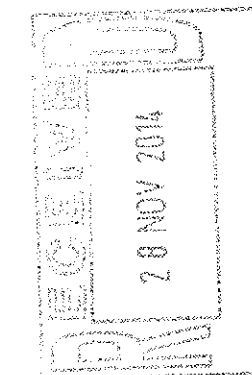 RECEIVED
28 NOV 2014